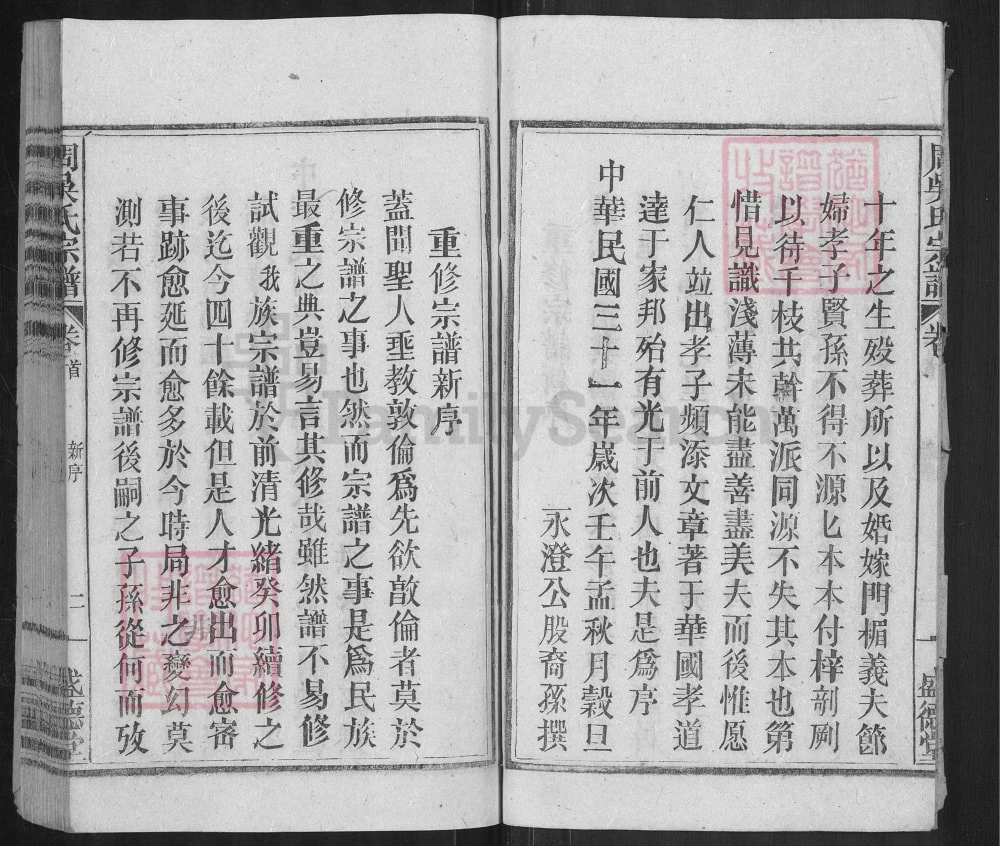 十年之生殁葬所以及婚嫁門楣義夫節
婦孝子賢孫不得不源匕本本付梓剞劂
以待千枝共幹萬派同源不失其本也第
惜見識淺薄未能盡善盡美夫而後惟愿
仁人竝出孝子頻添文章著于華國孝道
達于家邦殆有光于前人也夫是爲序
中華民國三十一年歲次壬午孟秋月穀旦
永澄公股裔孫撰
周吳氏宗譜
卷首
新序
二
盛德堂
重修宗譜新序
蓋聞聖人垂教敦倫爲先欲敦倫者莫於
修宗譜之事也然而宗譜之事是爲民族
最重之典豈易言其修哉雖然譜不易修
試觀我族宗譜於前清光緒癸卯續修之
後迄今四十餘載但是人才愈出而愈審
事跡愈延而愈多於今時局非之變幻莫
測若不再修宗譜後嗣之子孫從何而攷
FamilySearch